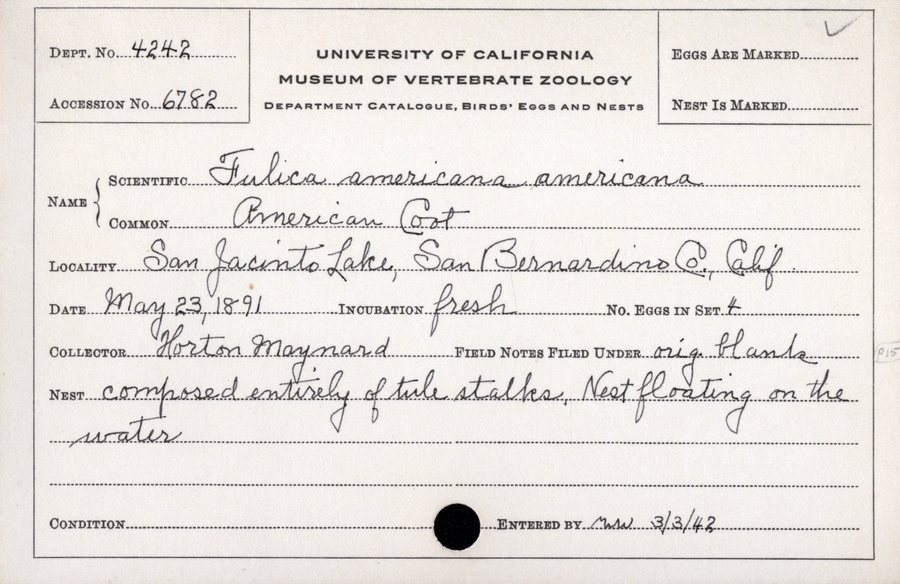 DEPT. No. 4242
ACCESSION No. 6782
UNIVERSITY OF CALIFORNIA
MUSEUM OF VERTEBRATE ZOOLOGY
DEPARTMENT CATALOGUE, BIRDS' EGGS AND NESTS
EGGS ARE MARKED
NEST IS MARKED
NAME
SCIENTIFIC Fulica americana americana
COMMON American Coot
LOCALITY San Jacinto Lake, San Bernardino Co., Calif.
DATE May 23, 1891 INCUBATION fresh No. EGGS IN SET 4
COLLECTOR Horton Maynard FIELD NOTES FILED UNDER orig. blanks
P15
NEST composed entirely of tule stalks. Nest floating on the
water
CONDITION ENTERED BY 3/3/42